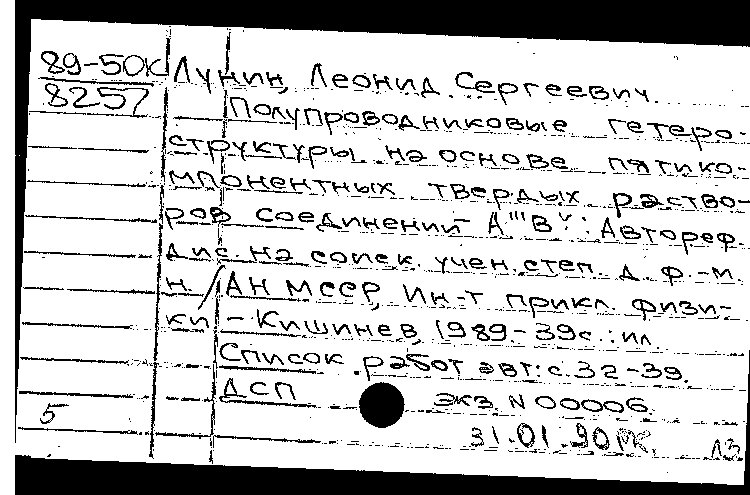 89-50К Лунин, Леонид Сергеевич.
8257 Полупроводниковые гетеро-
структуры на основе пятико-
мпонентных твердых раство-
ров соединений А'''В^v: Автореф.
дис. на соиск. учен. степ. д. ф.-м.
н. / АН МССР, Ин-т прикл. физи-
ки – Кишинев, 1989 - 39с.: ил.
Список работ авт: с. 32-39.
ДСП экз. N 00006.
5 31.01.90